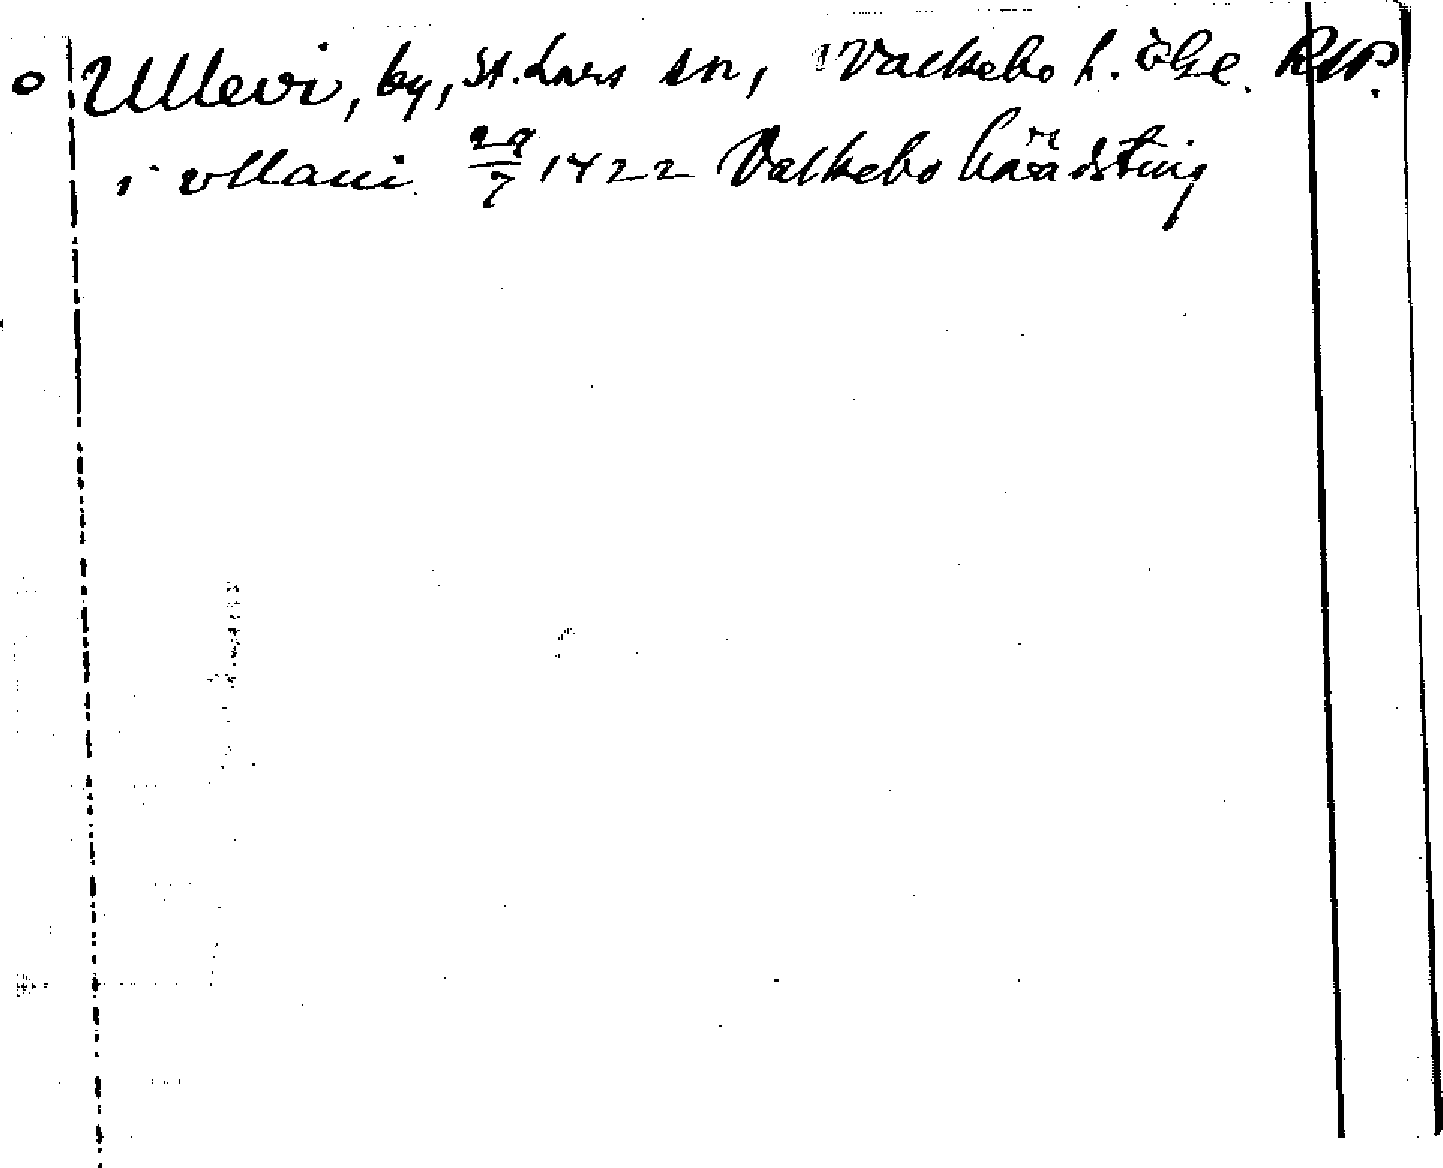 Ullevi, by, St. Lars sn, Valkebo h. Ögl. RAP.
i vllaui 29/7 1422 Valkebo häradsting